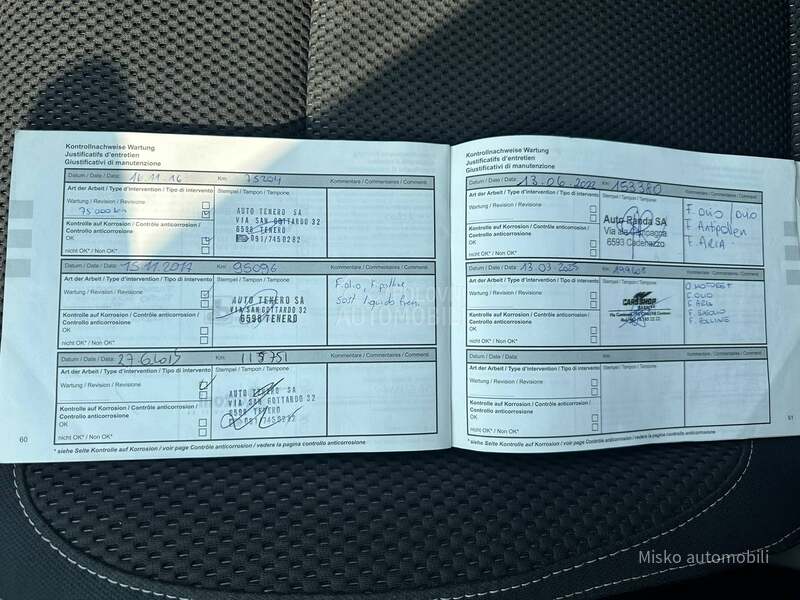 Kontrollnachweise Wartung
Justificatifs d'entretien
Giustificativi di manutenzione
Datum / Date / Data: 16.11.16 Km: 75204
Art der Arbeit / Type d'intervention / Tipo di intervento
Stempel / Tampon / Tampone
Kommentare / Commentaires / Commenti
Wartung / Revision / Revisione
75'000 km
Kontrolle auf Korrosion / Contrôle anticorrosion / Controllo anticorrosione
OK
nicht OK* / Non OK*
AUTO TENERO SA
VIA SAN GOTTARDO 32
6598 TENERO
091/7450282
Datum / Date / Data: 15.11.2017 Km: 95096
Art der Arbeit / Type d'intervention / Tipo di intervento
Stempel / Tampon / Tampone
Kommentare / Commentaires / Commenti
Wartung / Revision / Revisione
Kontrolle auf Korrosion / Contrôle anticorrosion / Controllo anticorrosione
OK
nicht OK* / Non OK*
AUTO TENERO SA
VIA SAN GOTTARDO 32
6598 TENERO
F.olio, F.polline
Sost. liquido freni
Datum / Date / Data: Km: 115751
Art der Arbeit / Type d'intervention / Tipo di intervento
Stempel / Tampon / Tampone
Kommentare / Commentaires / Commenti
Wartung / Revision / Revisione
Kontrolle auf Korrosion / Contrôle anticorrosion / Controllo anticorrosione
OK
nicht OK* / Non OK*
AUTO TENERO SA
VIA SAN GOTTARDO 32
6598 TENERO
091/7450282
* siehe Seite Kontrolle auf Korrosion / voir page Contrôle anticorrosion / vedere la pagina controllo anticorrosione
60
Kontrollnachweise Wartung
Justificatifs d'entretien
Giustificativi di manutenzione
Datum / Date / Data: 13.06.2022 Km: 153380
Art der Arbeit / Type d'intervention / Tipo di intervento
Stempel / Tampon / Tampone
Kommentare / Commentaires / Commenti
Wartung / Revision / Revisione
Kontrolle auf Korrosion / Contrôle anticorrosion / Controllo anticorrosione
OK
nicht OK* / Non OK*
Auto Panda SA
Via alle
6593 Cadenazzo
F. OLIO / OLIO
F. Antpollen
F. ARIA
Datum / Date / Data: 13.03.2025 Km:
Art der Arbeit / Type d'intervention / Tipo di intervento
Stempel / Tampon / Tampone
Kommentare / Commentaires / Commenti
Wartung / Revision / Revisione
Kontrolle auf Korrosion / Contrôle anticorrosion / Controllo anticorrosione
OK
nicht OK* / Non OK*
F. OLIO
F. ARIA
F. POLLINE
Datum / Date / Data: Km:
Art der Arbeit / Type d'intervention / Tipo di intervento
Stempel / Tampon / Tampone
Kommentare / Commentaires / Commenti
Wartung / Revision / Revisione
Kontrolle auf Korrosion / Contrôle anticorrosion / Controllo anticorrosione
OK
nicht OK* / Non OK*
* siehe Seite Kontrolle auf Korrosion / voir page Contrôle anticorrosion / vedere la pagina controllo anticorrosione
61
Misko automobili